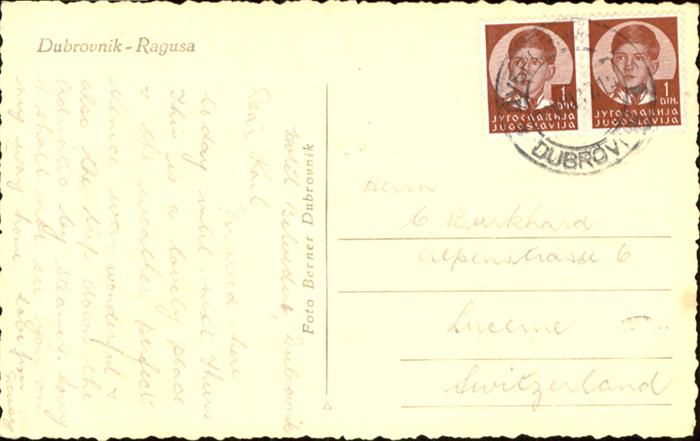 Dubrovnik - Ragusa
Hotel Belvedere, Dubrovnik
Dear Karl,
Arrived here
today until next Thurs
This is a lovely place
& the weather perfect
since was wonderful &
also the trip down the
Adriatic by steamer. Sorry
I shall not see you on
my way home Love from
Foto Berner Dubrovnik
1
DIN.
ЈУГОСЛАВИЈА
JUGOSLAVIJA
1
DIN.
ЈУГОСЛАВИЈА
JUGOSLAVIJA
DUBROV
Herrn
C Burkhard
Alpenstrasse 6
Lucerne
Switzerland